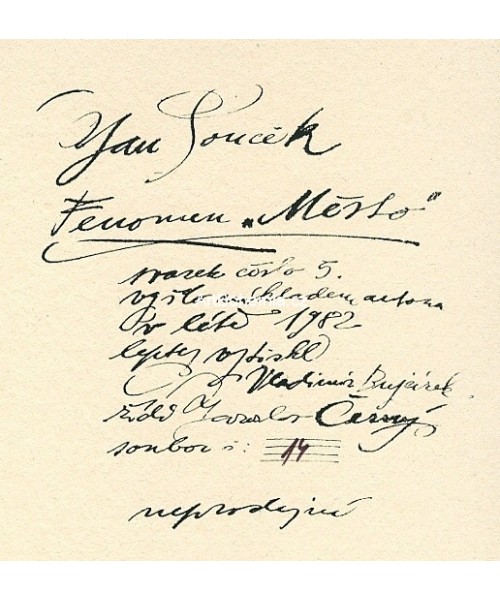 Jan Souček
Fenomen „Město“
svazek číslo 5.
vyšlo nákladem autora
v létě 1982
lepty vytiskl
Vladimír
řídí Jaroslav Černý
soubor č: 14
neprodejné